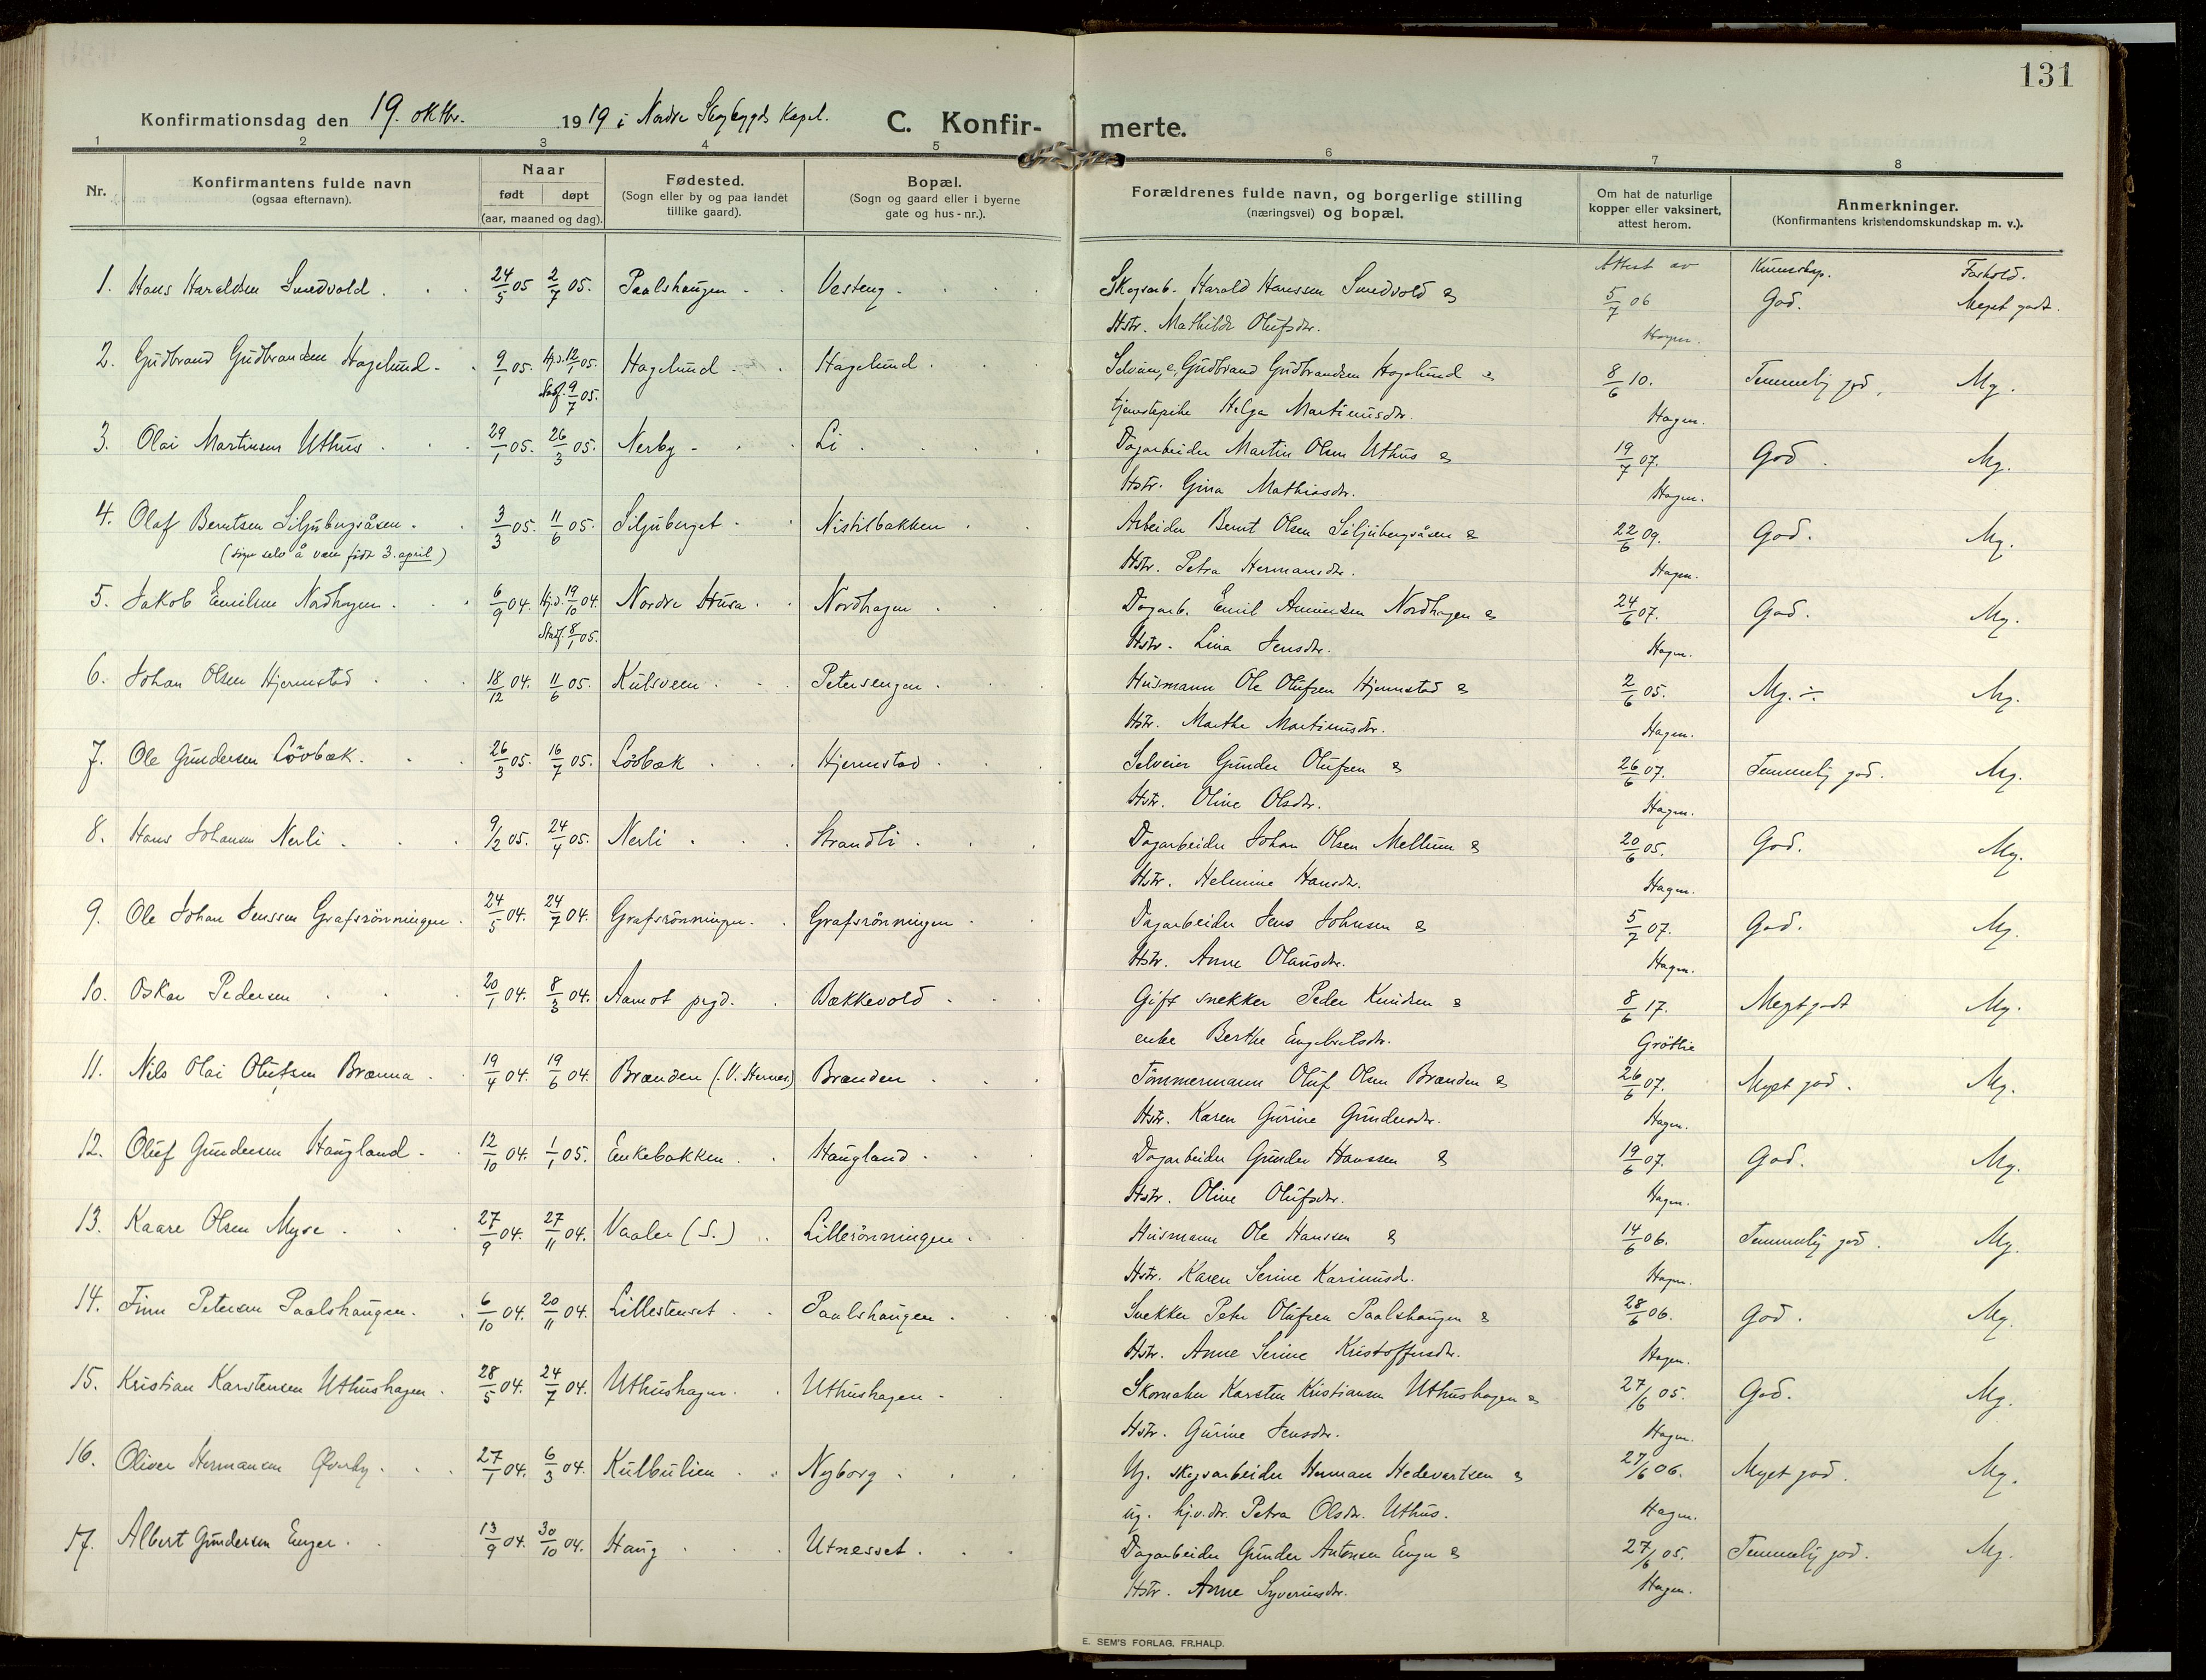 131
Konfirmationsdag den 19. oktbr. 1919 i Nordre Skogbygds Kapel.
C. Konfir- merte.
1 2 3 4 5 6 7 8
Nr.
Konfirmantens fulde navn
(ogsaa efternavn).
Naar
født døpt
(aar, maaned og dag).
Fødested.
(Sogn eller by og paa landet
tillike gaard).
Bopæl.
(Sogn og gaard eller i byerne
gate og hus-nr.).
Forældrenes fulde navn, og borgerlige stilling
(næringsvei) og bopæl.
Om hat de naturlige
kopper eller vaksinert,
attest herom.
Anmerkninger.
(Konfirmantens kristendomskundskap m. v.).
Attest av Kunnskap. Forhold.
1. Hans Haraldsen Smedvold. 24/5 05 2/7 05. Paalshaugen Vesteng. Skogsarb. Harald Hanssen Smedvold & 5/7 06 God. Meget godt.
Hstr. Mathilde Olufsdtr. Hagen.
2. Gudbrand Gudbrandsen Hagelund. 9/1 05. Hj.d. 12/1 05. Hagelund Hagelund. Selveier, e, Gudbrand Gudbrandsen Hagelund & 8/6 10. Temmelig god. Mg.
Stadf. 9/7 05. tjenstepike Helga Martinusdtr. Hagen.
3. Olai Martinsen Uthus 29/1 05. 26/3 05. Nerby Li Dagarbeider Martin Olsen Uthus & 19/7 07. God. Mg.
Hstr. Gina Mathiasdtr. Hagen.
4. Olaf Berntsen Siljubergsåsen. 3/3 05. 11/6 05. Siljuberget Nistilbakken Arbeider Bernt Olsen Siljubergsåsen & 22/6 09. God. Mg.
(sier selv å være født 3. april) Hstr. Petra Hermansdtr. Hagen.
5. Jakob Emilsen Nordhagen. 6/9 04. Hj.d. 19/10 04. Nordre Husa Nordhagen Dagarb. Emil Amundsen Nordhagen & 24/6 07. God. Mg.
Stadf. 8/1 05. Hstr. Lina Jensdtr. Hagen.
6. Johan Olsen Hjermstad 18/12 04. 11/6 05. Kulsveen Petersengen. Husmann Ole Olufsen Hjermstad & 2/6 05. Mg. ÷ Mg.
Hstr. Marthe Martinusdtr. Hagen.
7. Ole Gundersen Lövbæk. 26/3 05. 16/7 05. Lövbæk Hjermstad Selveier Gunder Olufsen & 26/6 07. Temmelig god. Mg.
Hstr. Oline Olsdtr. Hagen.
8. Hans Johansen Nerli. 9/2 05. 24/4 05. Nerli Strandli Dagarbeider Johan Olsen Mellum & 20/6 05. God. Mg.
Hstr. Helmine Hansdtr. Hagen.
9. Ole Johan Jenssen Grafsrönningen. 24/5 04. 24/7 04. Grafsrönningen Grafsrönningen Dagarbeider Jens Johnsen & 5/7 07. God. Mg.
Hstr. Anne Olausdtr. Hagen.
10. Oskar Pedersen 20/1 04. 8/3 04. Aamot prgd. Bækkevold Gift snekker Peder Knudsen & 8/6 17. Meget godt Mg.
enke Berthe Engebretsdtr. Gröttie
11. Nils Olai Olufsen Brænna 19/4 04. 19/6 04. Brænden (V. Hernes) Brænden Tömmermann Oluf Olsen Brænden & 26/6 07. Meget god. Mg.
Hstr. Karen Gurine Gundersdtr. Hagen.
12. Oluf Gundersen Haugland. 12/10 04. 1/1 05. Enkebakken Haugland Dagarbeider Gunder Hanssen & 19/6 07. God. Mg.
Hstr. Oline Olufsdtr. Hagen.
13. Kaare Olsen Myre 27/9 04. 27/11 04. Vaaler (S.) Lillerönningen Husmann Ole Hanssen & 14/6 06. Temmelig god. Mg.
Hstr. Karen Serine Karinusd. Hagen.
14. Finn Petersen Paalshaugen. 6/10 04. 20/11 04. Lillestenset Paalshaugen. Snekker Peter Olufsen Paalshaugen & 28/6 06. God. Mg.
Hstr. Anne Serine Kristoffersdtr. Hagen.
15. Kristian Karstensen Uthushagen. 28/5 04. 24/7 04. Uthushagen Uthushagen Skomaker Karsten Kristiansen Uthushagen & 27/6 05. God. Mg.
Hstr. Gurine Jensdtr. Hagen.
16. Oliver Hermansen Øverby 27/1 04. 6/3 04. Kulbulien Nyborg Ug. skogsarbeider Herman Hedevartsen & 27/6 06. Meget god. Mg.
ug. hj.v.dtr. Petra Olsdtr. Uthus. Hagen.
17. Albert Gundersen Enger 13/9 04. 30/10 04. Haug Utnesset Dagarbeider Gunder Antonsen Enger & 27/6 05. Temmelig god. Mg.
Hstr. Anne Syverinsdtr. Hagen.
E. SEM'S FORLAG. FR.HALD.